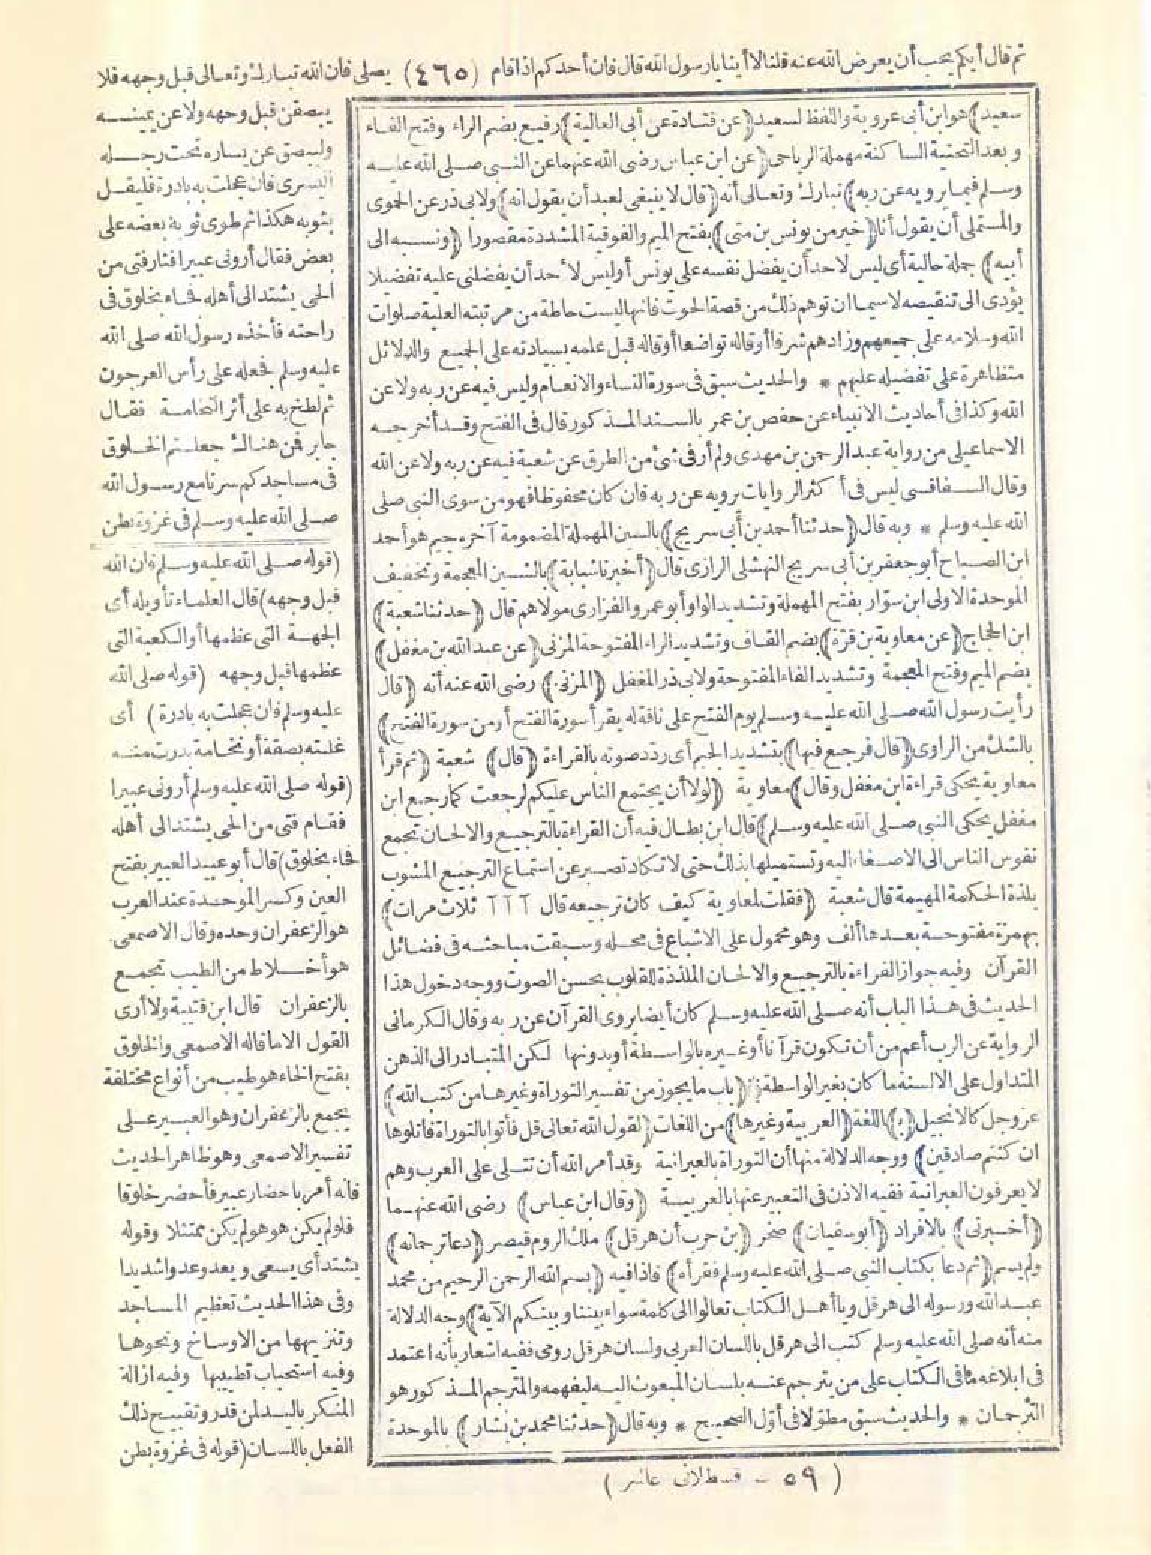 ثم قال أيكم يحب أن يعرض الله عنه قلنا لا أينا يا رسول الله قال فان أحدكم اذا قام (٤٦٥) يصلى فان الله تبارك وتعالى قبل وجهه فلا
سعيد) هو ابن أبى عروبة واللفظ لسعيد (عن قتادة عن أبى العالية) رفيع بضم الراء وفتح الفاء
وبعد التحتية الساكنة مهملة الرياحى (عن ابن عباس رضى الله عنهما عن النبى صلى الله عليه
وسلم فيما يرويه عن ربه) تبارك وتعالى أنه (قال لا ينبغى لعبد أن يقول انه) ولابى ذر عن الحموى
والمستملى أن يقول أنا (خير من يونس بن متى) بفتح الميم والفوقية المشددة مقصورا (ونسبه الى
أبيه) جملة حالية أى ليس لاحد أن يفضل نفسه على يونس أو ليس لأحد أن يفضلنى عليه تفضيلا
يؤدى الى تنقيصه لاسيما ان توهم ذلك من قصة الحوت فانها ليست حاطة من مرتبته العلية صلوات
الله وسلامه على جميعهم وزادهم شرفا أو قاله تواضعا أو قاله قبل علمه بسيادته على الجميع والدلائل
متظاهرة على تفضيله عليهم * والحديث سبق فى سورة النساء والانعام وليس فيه عن ربه ولا عن
الله وكذا فى أحاديث الانبياء عن حفص بن عمر بالسند المذكور قال فى الفتح وقد أخرجه
الاسماعيلى من رواية عبد الرحمن بن مهدى ولم أر فى شئ من الطرق عن شعبة فيه عن ربه ولا عن الله
وقال السفاقسى ليس فى أكثر الروايات يرويه عن ربه فان كان محفوظا فهو من سوى النبى صلى
الله عليه وسلم * وبه قال (حدثنا أحمد بن أبى سريج) بالسين المهملة المضمومة آخره جيم هو أحمد
ابن الصباح أبو جعفر بن أبى سريج النهشلى الرازى قال (أخبرنا شبابة) بالشين المعجمة وتخفيف
الموحدة الاولى ابن سوّار بفتح المهملة وتشديد الواو أبو عمرو الفزارى مولاهم قال (حدثنا شعبة)
ابن الحجاج (عن معاوية بن قرّة) بضم القاف وتشديد الراء المفتوحة المزنى (عن عبد الله بن مغفل)
بضم الميم وفتح المعجمة وتشديد الفاء المفتوحة ولابى ذر المغفل (المزنى) رضى الله عنه أنه (قال
رأيت رسول الله صلى الله عليه وسلم يوم الفتح على ناقة له يقرأ سورة الفتح أو من سورة الفتح)
بالشك من الراوى (قال فرجع فيها) بتشديد الجيم أى ردد صوته بالقراءة (قال) شعبة (ثم قرأ
معاوية يحكى قراءة ابن مغفل وقال) معاوية (لولا أن يجتمع الناس عليكم لرجعت كما رجع ابن
مغفل يحكى النبى صلى الله عليه وسلم) قال ابن بطال فيه أن القراءة بالترجيع والالحان تجمع
نفوس الناس الى الاصغاء اليه وتستميلها بذلك حتى لا تكاد تصبر عن استماع الترجيع المشوب
بلذة الحكمة المهيمة قال شعبة (فقلت لمعاوية كيف كان ترجيعه قال آ آ آ ثلاث مرات)
بهمزة مفتوحة بعدها ألف وهو محمول على الاشباع فى محله وسبقت مباحثه فى فضائل
القرآن وفيه جواز القراءة بالترجيع والالحان الملذذة للقلوب بحسن الصوت ووجه دخول هذا
الحديث فى هذا الباب أنه صلى الله عليه وسلم كان أيضا يروى القرآن عن ربه وقال الكرمانى
الرواية عن الرب أعم من أن تكون قرآنا أو غيره بالواسطة أو بدونها لكن المتبادر الى الذهن
المتداول على الالسنة ما كان بغير الواسطة (باب ما يجوز من تفسير التوراة وغيرها من كتب الله)
عز وجل كالانجيل (ب) اللغة (العربية وغيرها) من اللغات (لقول الله تعالى قل فأتوا بالتوراة فاتلوها
ان كنتم صادقين) ووجه الدلالة منها أن التوراة بالعبرانية وقد أمر الله أن تتلى على العرب وهم
لا يعرفون العبرانية ففيه الاذن فى التعبير عنها بالعربية (وقال ابن عباس) رضى الله عنهما
(أخبرنى) بالافراد (أبو سفيان) صخر (بن حرب أن هرقل) ملك الروم قيصر (دعا ترجمانه)
ولم يسم (ثم دعا بكتاب النبى صلى الله عليه وسلم فقرأه) فاذا فيه (بسم الله الرحمن الرحيم من محمد
عبد الله ورسوله الى هرقل ويا أهل الكتاب تعالوا الى كلمة سواء بيننا وبينكم الآية) وجه الدلالة
منه أنه صلى الله عليه وسلم كتب الى هرقل باللسان العربى ولسان هرقل رومى ففيه اشعار بأنه اعتمد
فى ابلاغه ما فى الكتاب على من يترجم عنه بلسان المبعوث اليه ليفهمه والمترجم المذكور هو
الترجمان * والحديث سبق مطوّلا فى أوّل الصحيح * وبه قال (حدثنا محمد بن بشار) بالموحدة
يبصقن قبل وجهه ولا عن يمينه
وليبصق عن يساره تحت رجله
اليسرى فان عجلت به بادرة فليقل
بثوبه هكذا ثم طوى ثوبه بعضه على
بعض فقال أرونى عبيرا فثار فتى من
الحى يشتد الى أهله فجاء بخلوق فى
راحته فأخذه رسول الله صلى الله
عليه وسلم فجعله على رأس العرجون
ثم لطخ به على أثر النخامة فقال
جابر فمن هناك جعلتم الخلوق
فى مساجدكم سرنا مع رسول الله
صلى الله عليه وسلم فى غزوة بطن
(قوله صلى الله عليه وسلم فان الله
قبل وجهه) قال العلماء تأويله أى
الجهة التى عظمها أو الكعبة التى
عظمها قبل وجهه (قوله صلى الله
عليه وسلم فان عجلت به بادرة) أى
غلبته بصقة أو نخامة بدرت منه
(قوله صلى الله عليه وسلم أرونى عبيرا
فقام فتى من الحى يشتد الى أهله
فجاء بخلوق) قال أبو عبيد العبير بفتح
العين وكسر الموحدة عند العرب
هو الزعفران وحده وقال الاصمعى
هو أخلاط من الطيب تجمع
بالزعفران قال ابن قتيبة ولا أرى
القول الا ما قاله الاصمعى والخلوق
بفتح الخاء هو طيب من أنواع مختلفة
يجمع بالزعفران وهو العبير على
تفسير الاصمعى وهو ظاهر الحديث
فانه أمر باحضار عبير فأحضر خلوقا
فلو لم يكن هو هو لم يكن ممتثلا وقوله
يشتد أى يسعى ويعدو عدوا شديدا
وفى هذا الحديث تعظيم المساجد
وتنزيهها من الاوساخ ونحوها
وفيه استحباب تطييبها وفيه ازالة
المنكر باليد لمن قدر وتقبيح ذلك
الفعل باللسان (قوله فى غزوة بطن
(٥٩ - قسطلانى عاشر)